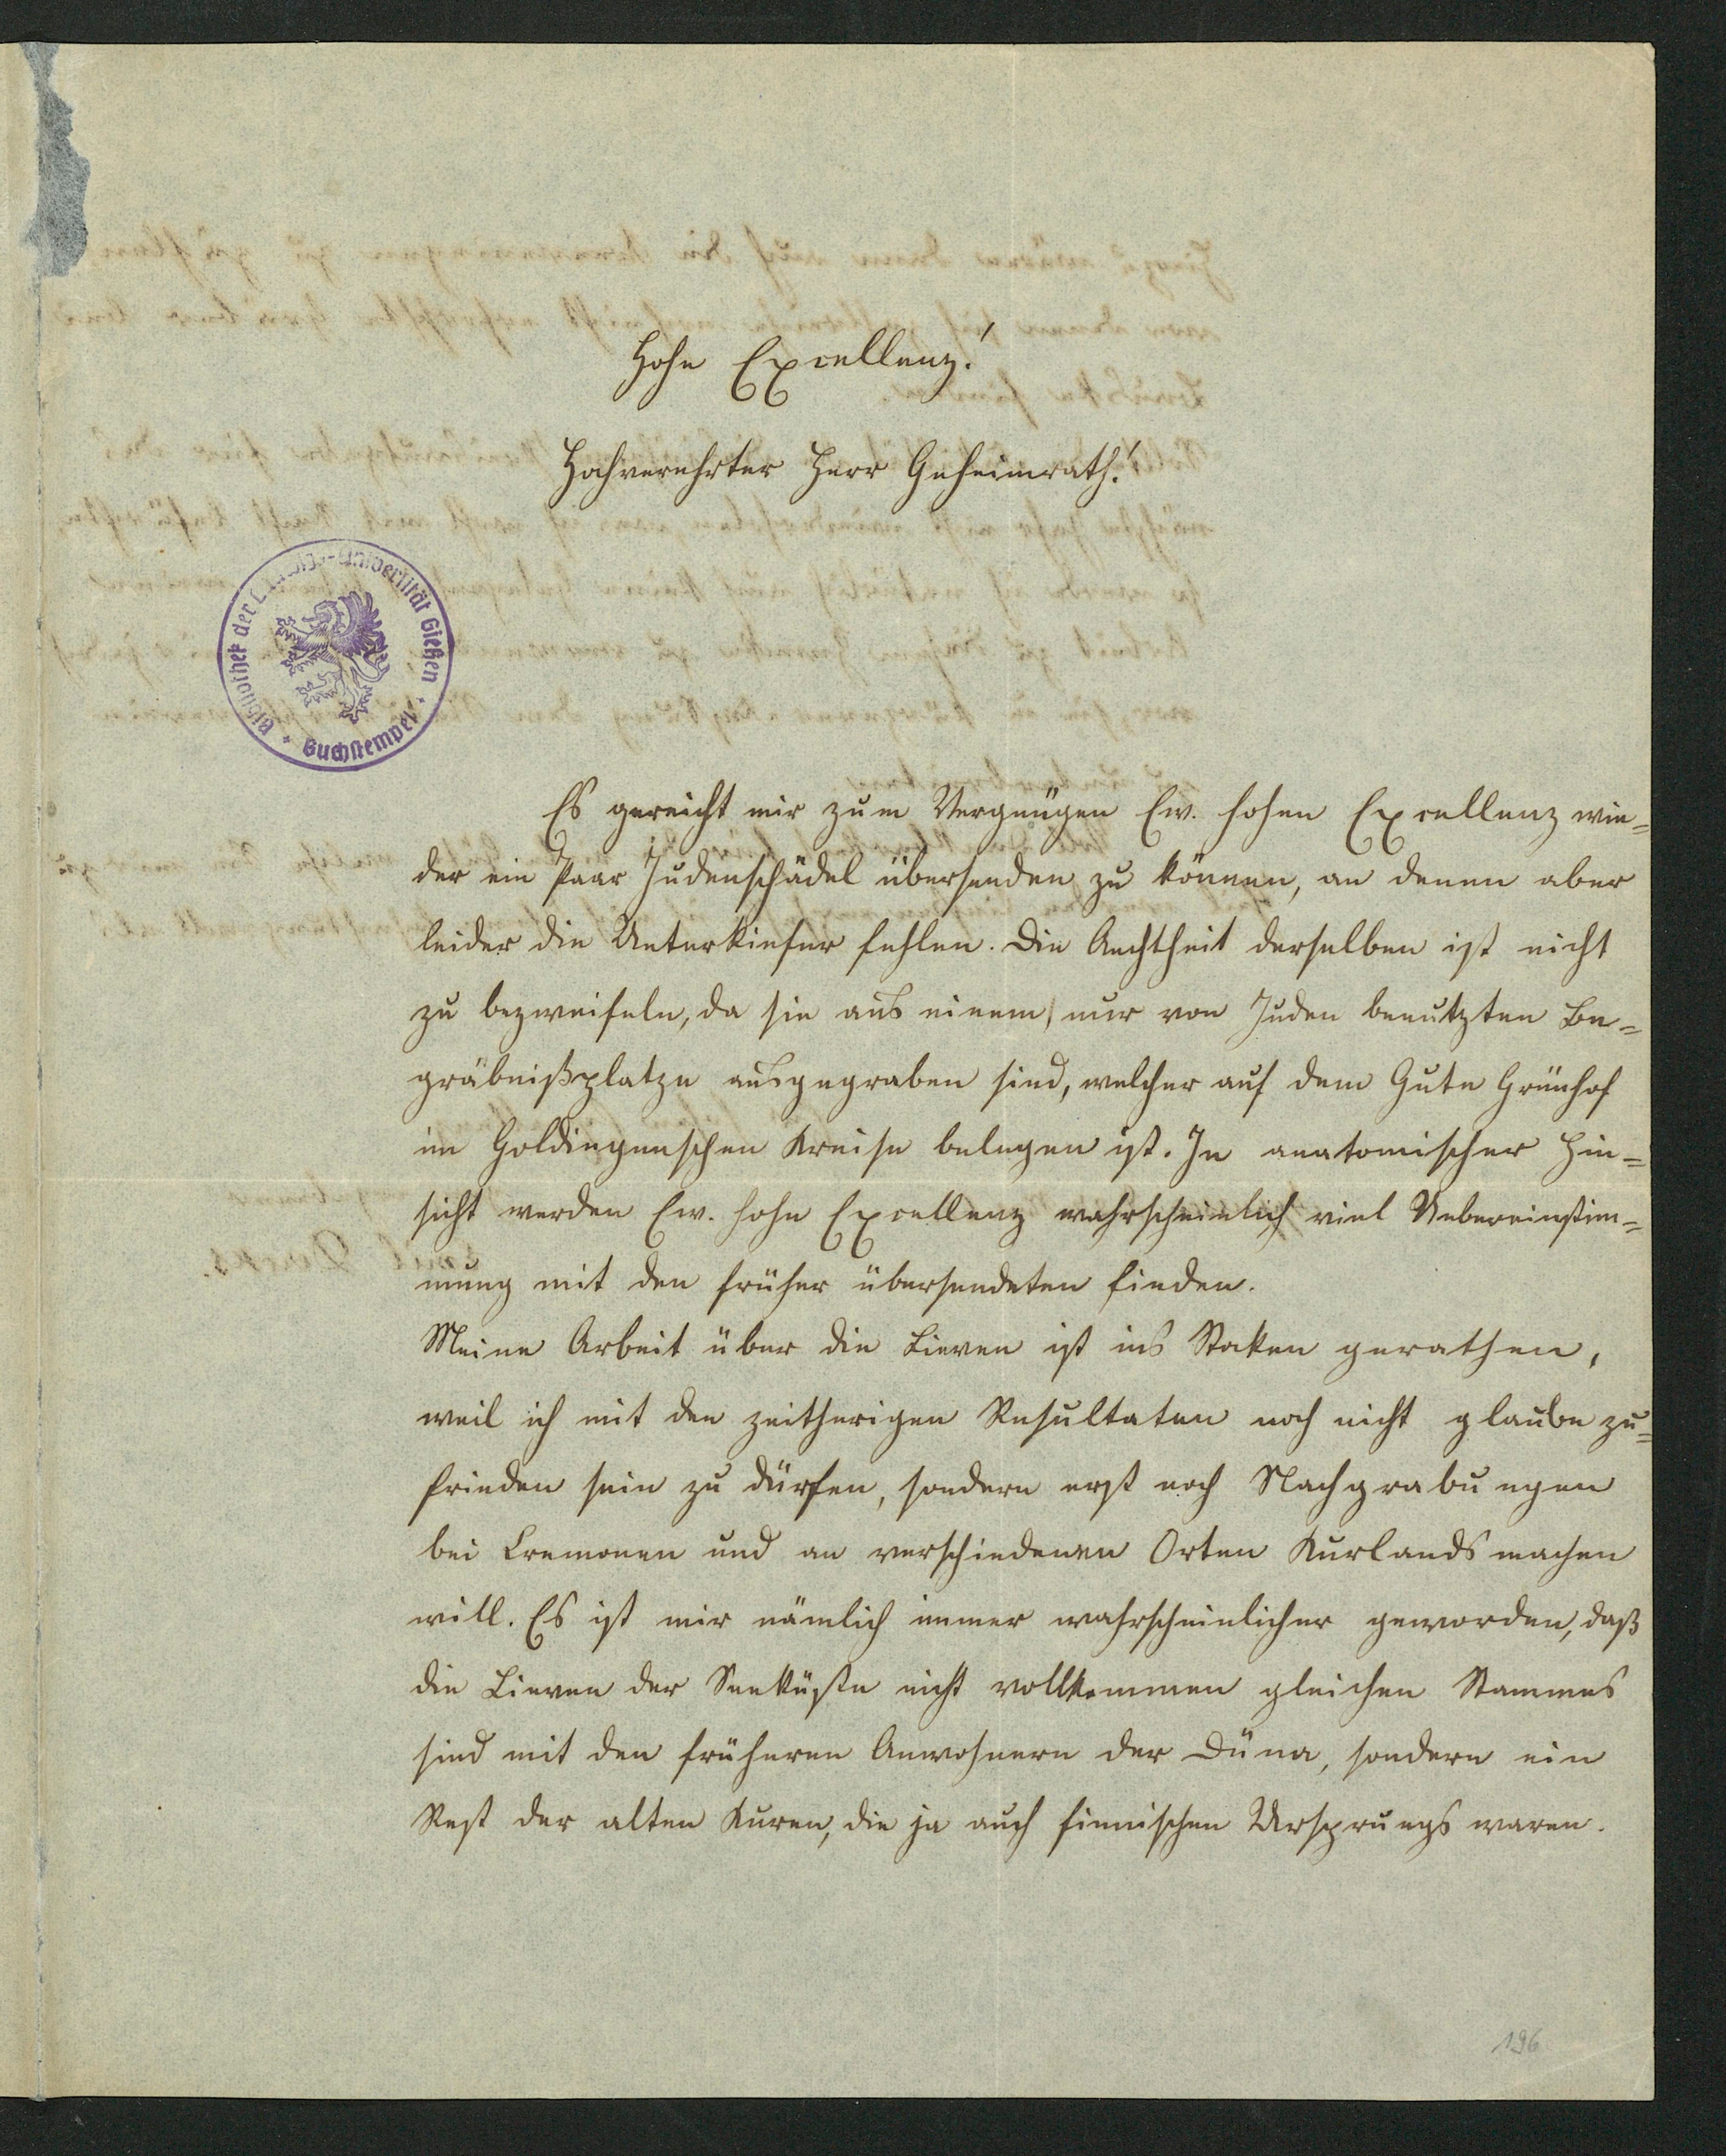 Hohe Excellenz!
Hochverehrter Herr Geheimrath!
Bibliothek der Ludwigs-Universität Gießen
Buchstempel
Es gereicht mir zum Vergnügen Ew. hohen Excellenz wie=
der ein Paar Judenschädel übersenden zu können, an denen aber
leider die Unterkiefer fehlen. Die Aechtheit derselben ist nicht
zu bezweifeln, da sie aus einem, nur von Juden benutzten Be=
gräbnißplatze ausgegraben sind, welcher auf dem Gute Grünhof
im Goldingenschen Kreise belegen ist. In anatomischer Hin=
sicht werden Ew. hohe Excellenz wahrscheinlich viel Uebereinstim=
mung mit den früher übersendeten finden.
Meine Arbeit über die Lieven ist ins Stoken gerathen,
weil ich mit den zeitherigen Resultaten noch nicht glaube zu=
frieden sein zu dürfen, sondern erst noch Nachgrabungen
bei Cremonen und an verschiedenen Orten Kurlands machen
will. Es ist mir nämlich immer wahrscheinlicher geworden, daß
die Lieven der Seeküste nicht vollkommen gleichen Stammes
sind mit den früheren Anwohnern der Düna, sondern ein
Rest der alten Kuren, die ja auch finnischen Ursprungs waren.
196